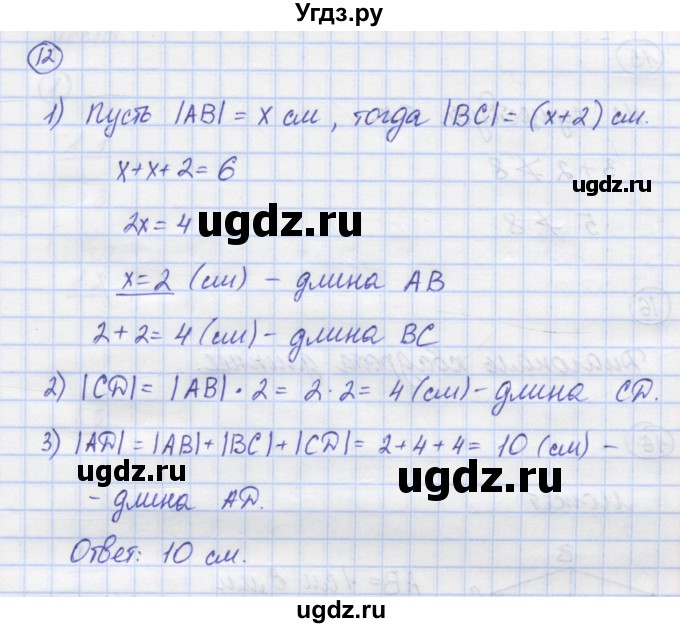 Угдз.ру
12
1) Пусть |AB| = x см, тогда |BC| = (x+2) см.
x+x+2=6
ugdz.ru
2x=4
ugdz.ru
x=2 (см) - длина AB
2+2=4 (см) - длина BC
2) |CD| = |AB| · 2 = 2 · 2 = 4 (см) - длина CD.
3) |AD| = |AB|+|BC|+|CD| = 2+4+4= 10 (см) -
ugdz.ru
ugdz.ru
- длина AD.
Ответ: 10 см.
ugdz.ru